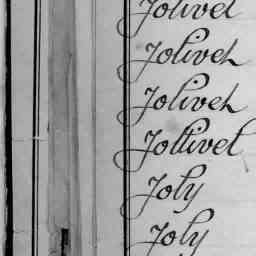 Jolivel
Jolivet
Jolivet
Jollivet
Joly
Joly